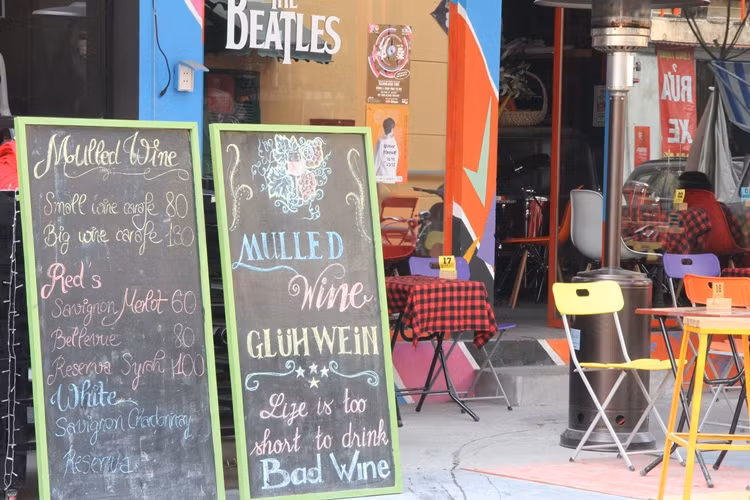 THE
BEATLES
Mulled Wine
Small wine carafe 80
Big wine carafe 130
Reds
Sauvignon Merlot 60
Bellevue 80
Reserva Syrah 100
White
Sauvignon Chardonnay
Reserva
MULLED
Wine
GLÜHWEIN
Lize is too
short to drink
Bad Wine
17
RỬA
XE